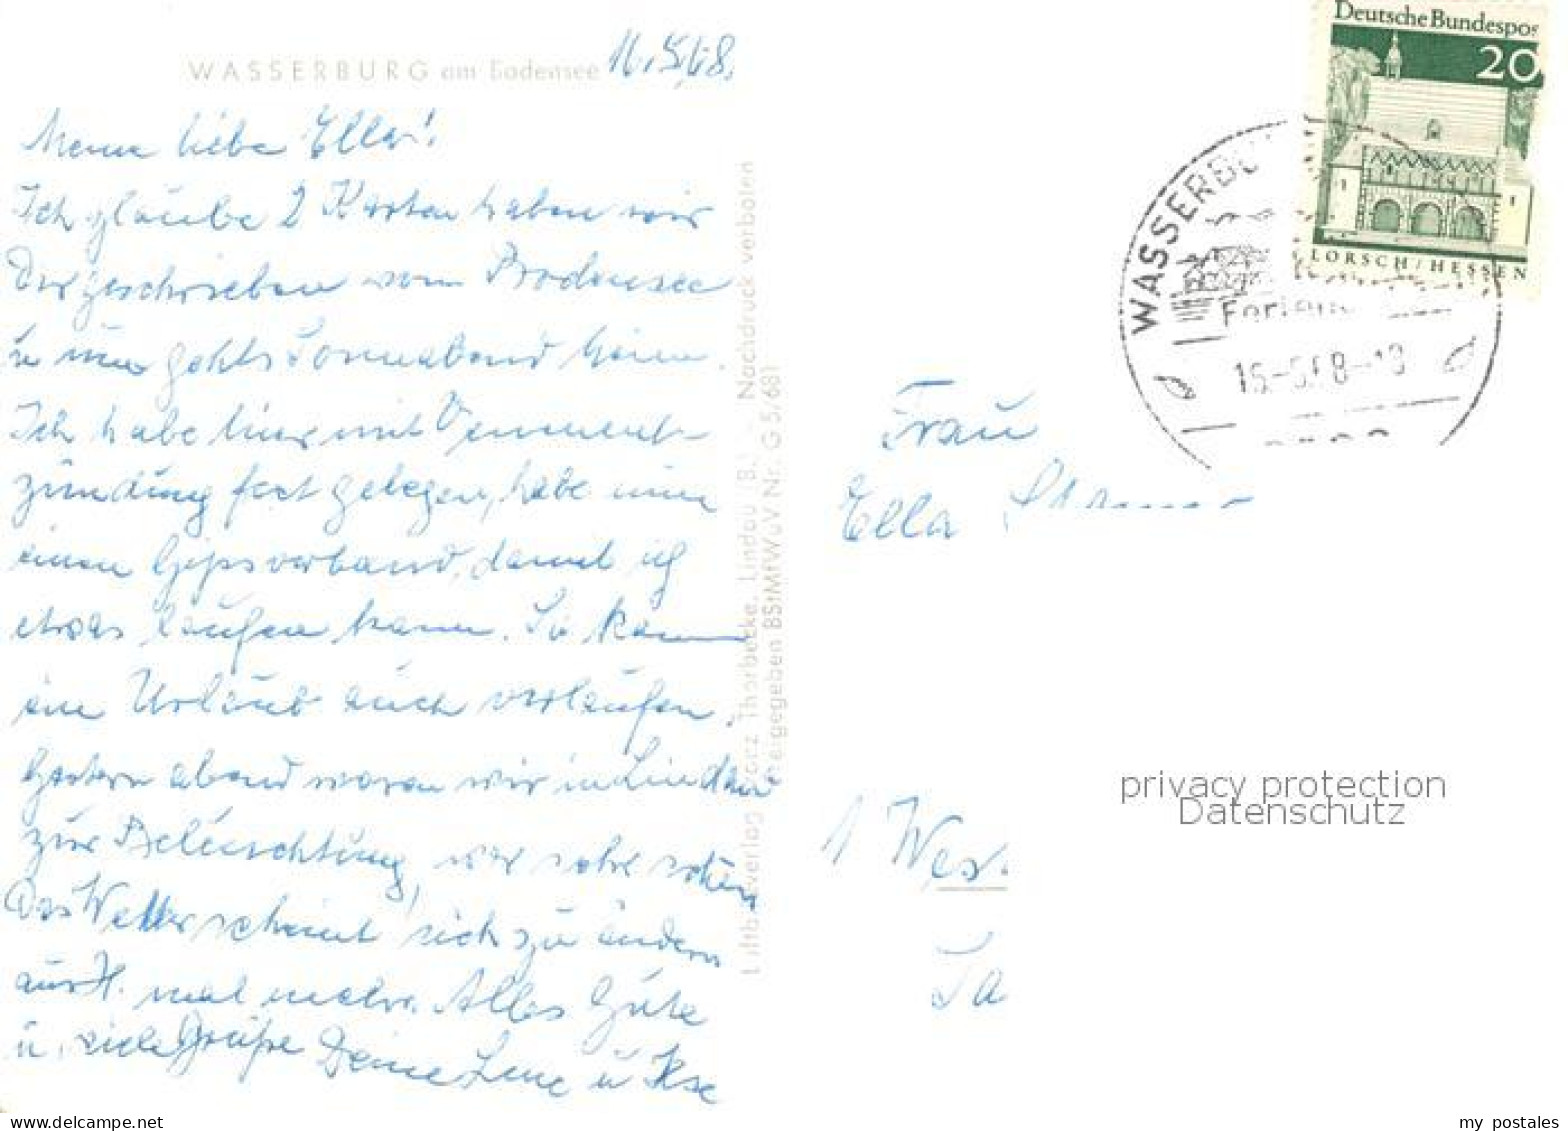 WASSERBURG am Bodensee 16.5.68.
Meine liebe Ella!
Ich glaube 2 Karten haben wir
Dir geschrieben vom Bodensee
u nun gehts Sonnabend heim.
Ich habe hier mit Venenent-
zündung fest gelegen, habe nun
einen Gipsverband, damit ich
etwas laufen kann. So kann
ein Urlaub auch verlaufen.
Gestern abend waren wir in Lindau
zur Beleuchtung, war sehr schön
Das Wetter scheint sich zu ändern
mal mehr. Alles Gute
u. viele Grüße Deine Lene u Ilse
Luftbildverlag Franz Thorbecke, Lindau (B.) - Nachdruck verboten
freigegeben BStMfWuV Nr. G 5/681
Deutsche Bundespos
20
LORSCH/HESSEN
WASSERBU
Ferien
Frau
Ella
1 Wes
privacy protection
Datenschutz
www.delcampe.net
my_postales